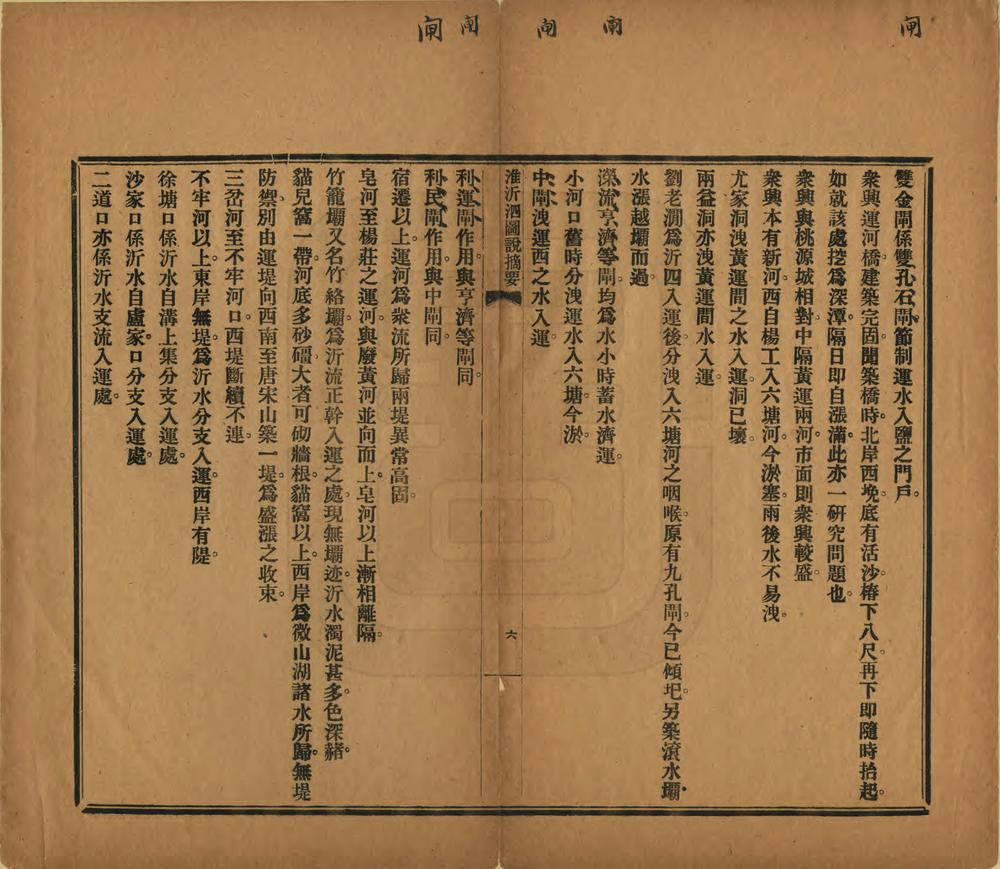 閘
閘
閘
閘
閘
雙金閘係雙孔石閘。節制運水入鹽之門戶。
衆興運河橋建築完固。聞築橋時。北岸西堍。底有活沙。樁下八尺。再下即隨時抬起。
如就該處挖爲深潭。隔日即自漲滿。此亦一研究問題也。
衆興與桃源城相對。中隔黃運兩河。市面則衆興較盛。
衆興本有新河。西自楊工入六塘河。今淤塞。雨後水不易洩。
尤家洞洩黃運間之水入運。洞已壞。
兩益洞亦洩黃運間水入運。
劉老澗爲沂四入運後。分洩入六塘河之咽喉。原有九孔閘。今已傾圯。另築滾水壩。
水漲越壩而過。
濚流亨濟等閘。均爲水小時蓄水濟運。
小河口舊時分洩運水入六塘。今淤。
中閘洩運西之水入運。
淮沂泗圖說摘要
六
利運閘作用。與亨濟等閘同。
利民閘作用。與中閘同。
宿遷以上。運河爲衆流所歸。兩堤異常高固。
皂河至楊莊之運河。與廢黃河並向而上。皂河以上漸相離隔。
竹籠壩又名竹絡壩。爲沂流正幹入運之處。現無壩迹。沂水濁泥甚多。色深赭。
貓兒窩一帶。河底多砂礓。大者可砌牆根。貓窩以上。西岸爲微山湖諸水所歸。無堤
防禦。別由運堤向西南至唐宋山。築一堤。爲盛漲之收束。
三岔河至不牢河口。西堤斷續不連。
不牢河以上。東岸無堤。爲沂水分支入運。西岸有隄。
徐塘口係沂水自溝上集分支入運處。
沙家口係沂水自盧家口分支入運處。
二道口亦係沂水支流入運處。